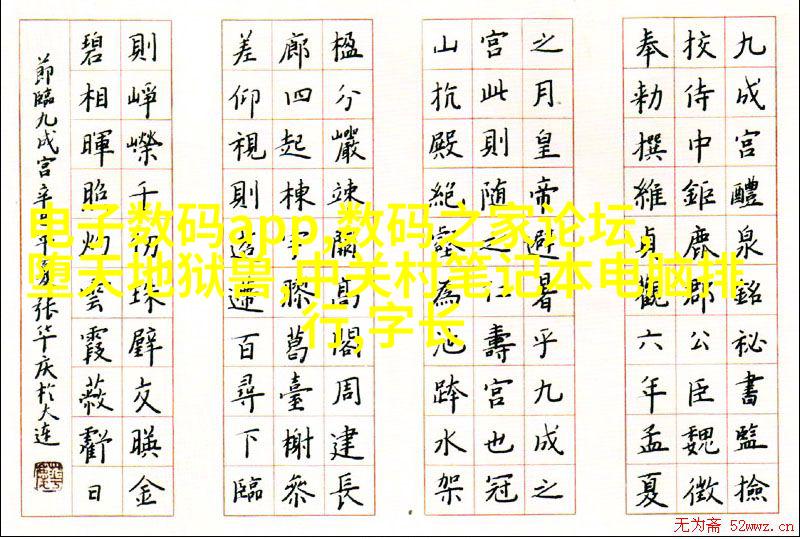 九成宮醴泉銘秘書監撿
挍侍中鉅鹿郡公臣魏徵
奉勑撰維貞觀六年孟夏
之月皇帝避暑乎九成之
宮此則随之仁壽宮也冠
山抗殿絶壑為池跨水架
楹分巖竦闕高閣周建長
廊四起棟宇膠葛臺榭參
差仰視則迢遰百尋下臨
則崢嶸千仞珠璧交暎金
碧相暉照灼雲霞蔽虧日
節臨九成宮辛丑年夏张华庆於大连
电子数码app,数码之家论坛,
堕天地狱兽,中关村笔记本电脑排
行,字长
无为斋 52wwz.cn